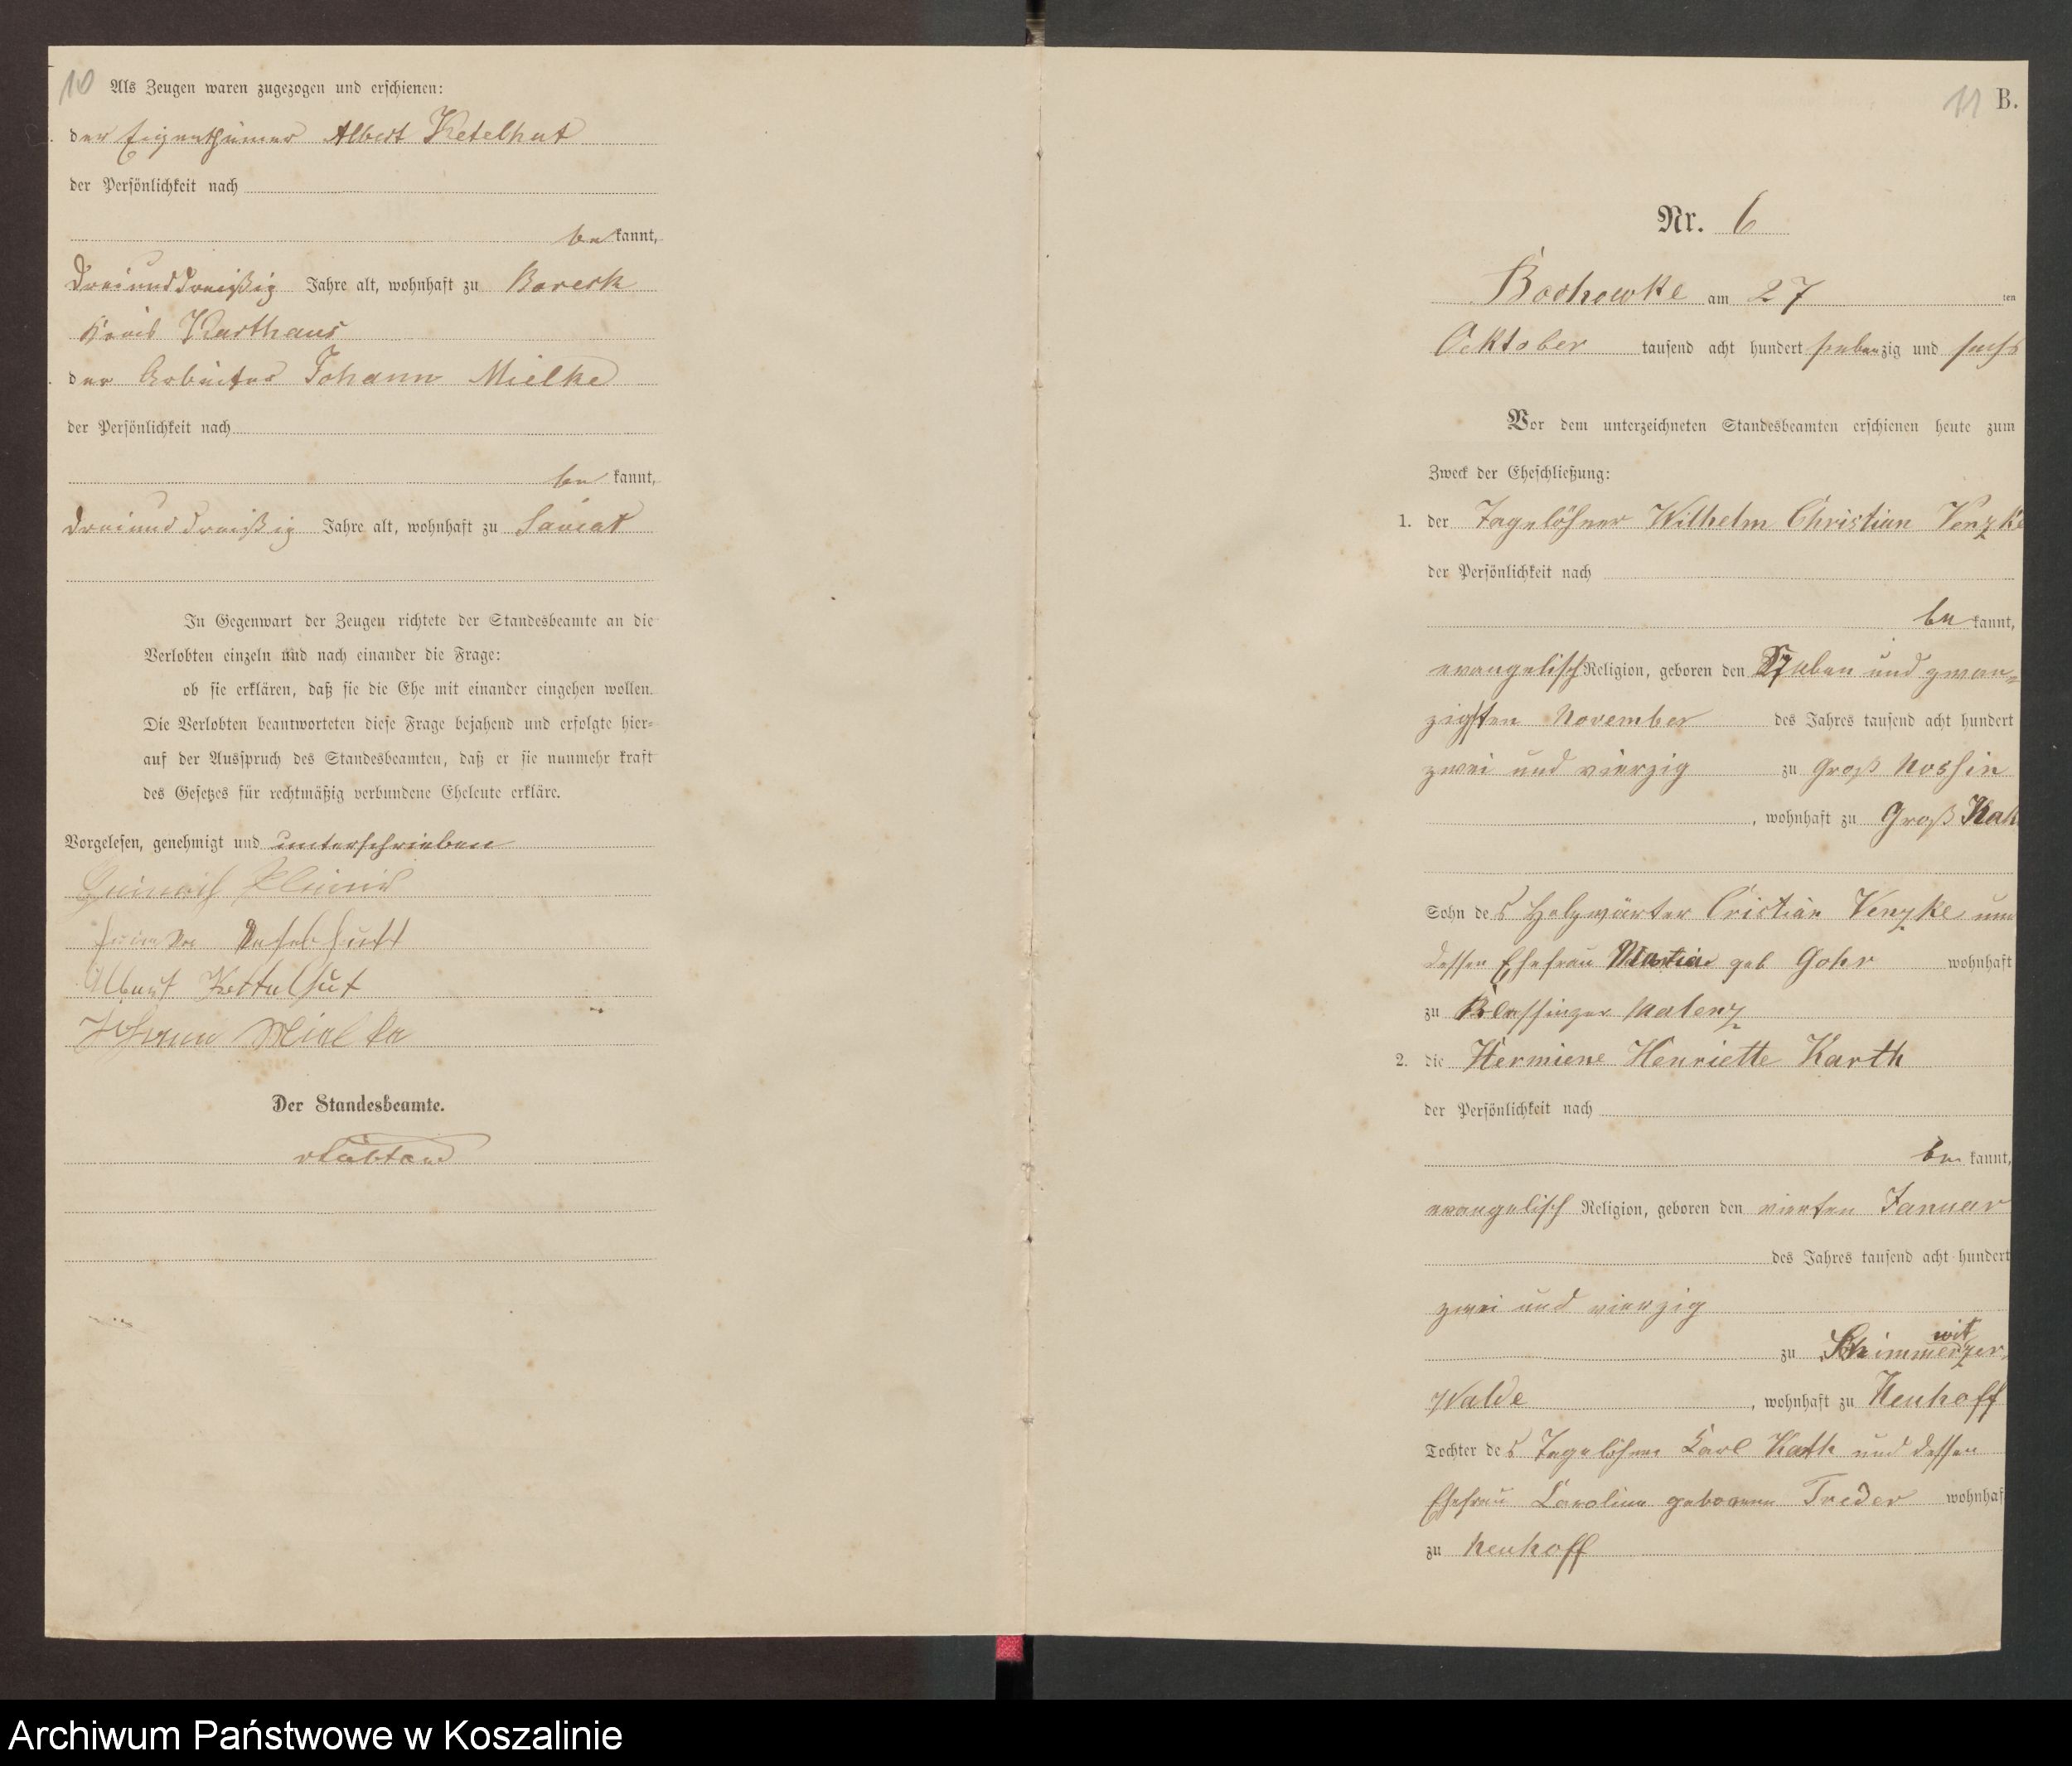 10
Als Zeugen waren zugezogen und erschienen:
der Eigenthümer Albert Ketelhut
der Persönlichkeit nach
be kannt,
dreiunddreißig Jahre alt, wohnhaft zu Boresk
Kreis Karthaus
der Arbeiter Johann Mielke
der Persönlichkeit nach
be kannt,
dreiunddreißig Jahre alt, wohnhaft zu Saviat
In Gegenwart der Zeugen richtete der Standesbeamte an die
Verlobten einzeln und nach einander die Frage:
ob sie erklären, daß sie die Ehe mit einander eingehen wollen.
Die Verlobten beantworteten diese Frage bejahend und erfolgte hier-
auf der Ausspruch des Standesbeamten, daß er sie nunmehr kraft
des Gesetzes für rechtmäßig verbundene Eheleute erkläre.
Vorgelesen, genehmigt und unterschrieben
Heinrich
Albert Kettelhut
Johann Mielke
Der Standesbeamte.
11 B.
Nr. 6
Bochowke am 27 ten
Ocktober tausend acht hundert siebenzig und sechs
Vor dem unterzeichneten Standesbeamten erschienen heute zum
Zweck der Eheschließung:
1. der Tagelöhner Wilhelm Christian Venzke
der Persönlichkeit nach
be kannt,
evangelisch Religion, geboren den Sieben und zwan-
zigsten November des Jahres tausend acht hundert
zwei und vierzig zu Groß Nossin
, wohnhaft zu Groß
Sohn des Holzwärter Cristian Venzke und
dessen Ehefrau geb Gohr wohnhaft
zu
2. die Hermiene Henriette Karth
der Persönlichkeit nach
be kannt,
evangelisch Religion, geboren den vierten Januar
des Jahres tausend acht hundert
zwei und vierzig
zu
Walde , wohnhaft zu Neuhoff
Tochter des Tagelöhner Carl Karth und dessen
Ehefrau Caroline geborenen Treder wohnhaf
zu Neuhoff
Archiwum Państwowe w Koszalinie